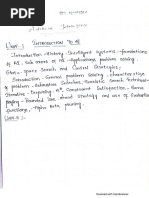 Unit-I INTRODUCTION TO AI
Introduction - History - Intelligent Systems - foundations
of AI, Sub areas of AI - Applications, problem solving -
State-Space Search and Control Strategies;
Introduction, General problem solving, characteristics
of problem, Exhaustive Searches, Heuristic Search Techniques
Iterative - Deepening A*, Constraint Satisfaction, Game
Playing - Bounded look ahead strategy and use of Evaluation
functions, Alpha Beta pruning.
Scanned with CamScanner